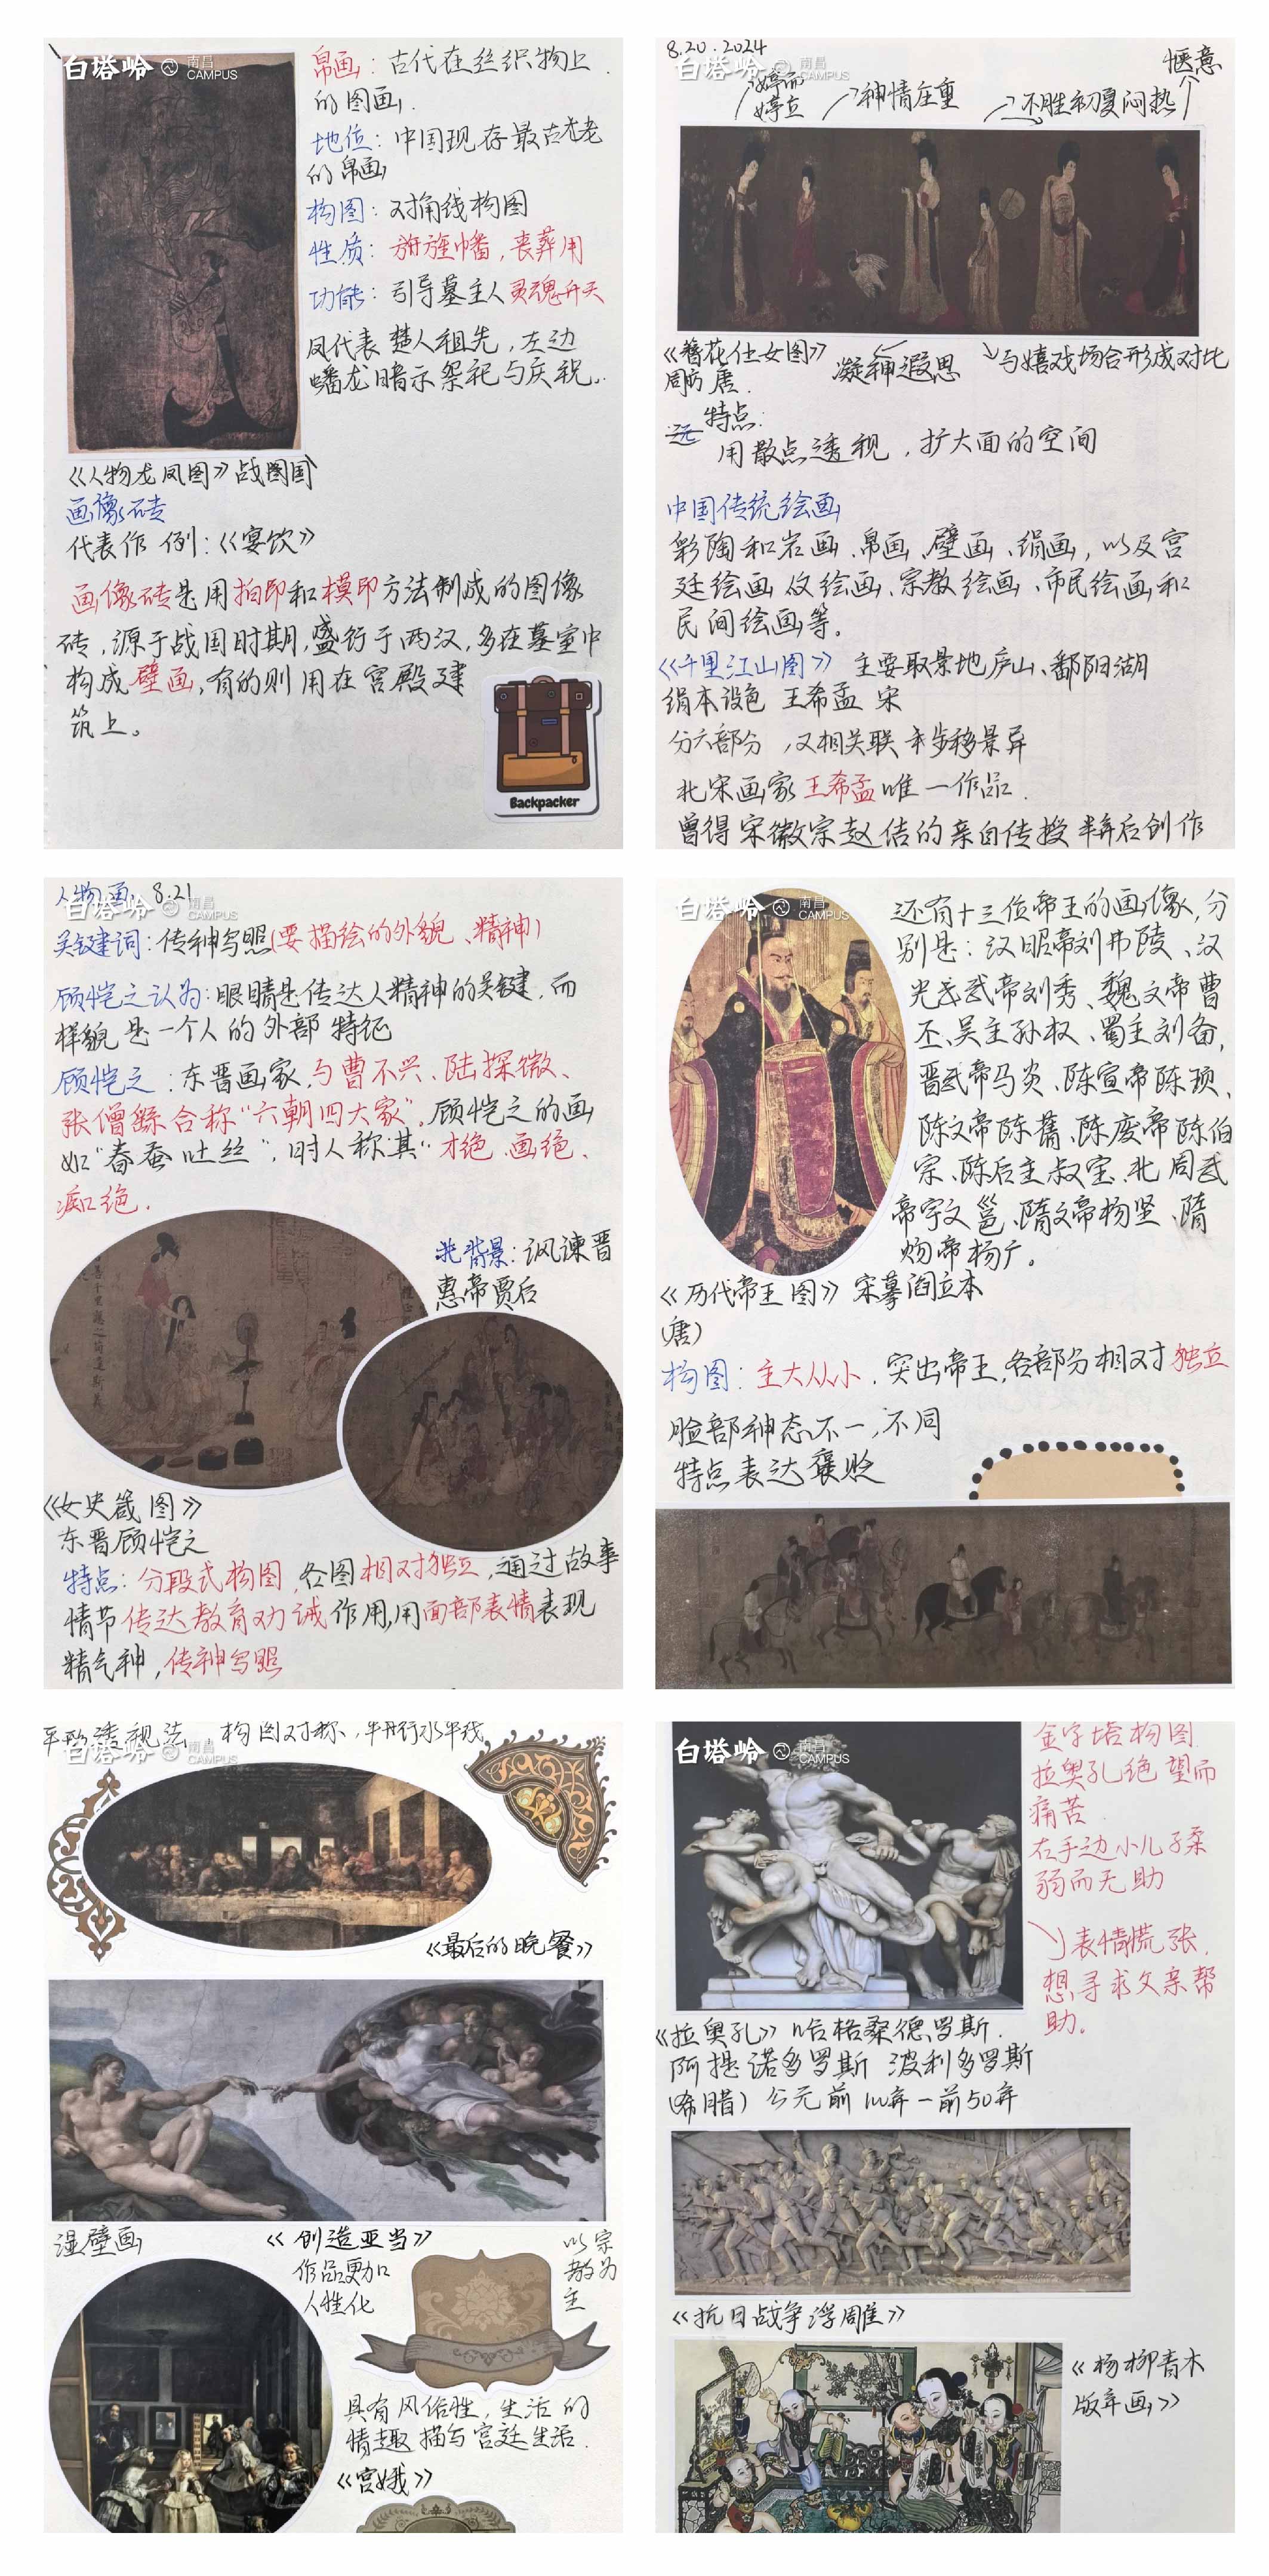 白塔岭 南昌 CAMPUS
帛画：古代在丝织物上
的图画。
地位：中国现存最古老
的帛画
构图：对角线构图
性质：旌幡，丧葬用
功能：引导墓主人灵魂升天
凤代表楚人祖先，左边
蟠龙暗示祭祀与庆祝。
《人物龙凤图》战国
画像砖
代表作 例：《宴饮》
画像砖是用拍印和模印方法制成的图像
砖，源于战国时期，盛行于两汉，多在墓室中
构成壁画，有的则用在宫殿建
筑上。
Backpacker
8.20.2024
白塔岭 南昌 CAMPUS
婷而
婷立
神情庄重
不胜初夏闷热
惬意
《簪花仕女图》
周昉 唐.
凝神遐思
与嬉戏场合形成对比
特点：
用散点透视，扩大面的空间
中国传统绘画
彩陶和岩画、帛画、壁画、绢画，以及宫
廷绘画、文绘画、宗教绘画、市民绘画和
民间绘画等。
《千里江山图》 主要取景地庐山、鄱阳湖
绢本设色 王希孟 宋
分六部分，又相关联 步移景异
北宋画家王希孟唯一作品.
曾得宋徽宗赵佶的亲自传授 半年后创作
人物画 8.21
白塔岭 南昌 CAMPUS
关键词：传神写照(要描绘的外貌、精神)
顾恺之认为：眼睛是传达人精神的关键，而
样貌是一个人的外部特征
顾恺之：东晋画家，与曹不兴、陆探微、
张僧繇合称“六朝四大家”。顾恺之的画
如“春蚕吐丝”，时人称其“才绝、画绝、
痴绝.
背景：讽谏晋
惠帝贾后
《女史箴图》
东晋顾恺之
特点：分段式构图，各图相对独立，通过故事
情节传达教育劝诫作用，用面部表情表现
精气神，传神写照
白塔岭 南昌 CAMPUS
还有十三位帝王的画像，分
别是：汉昭帝刘弗陵、汉
光武帝刘秀、魏文帝曹
丕、吴主孙权、蜀主刘备，
晋武帝马炎、陈宣帝陈顼、
陈文帝陈蒨、陈废帝陈伯
宗、陈后主叔宝、北周武
帝宇文邕、隋文帝杨坚、隋
炀帝杨广。
《历代帝王图》 宋摹阎立本
(唐)
构图：主大从小，突出帝王，各部分相对独立
脸部神态不一，不同
特点表达褒贬
平行透视法，构图对称、平行水平线
白塔岭 南昌 CAMPUS
《最后的晚餐》
湿壁画
《创造亚当》
作品更加
人性化
以宗
教为
主
具有风俗性，生活的
情趣 描写宫廷生活.
《宫娥》
白塔岭 南昌 CAMPUS
金字塔构图
拉奥孔绝望而
痛苦.
右手边小儿子柔
弱而无助
表情慌张，
想寻求父亲帮
助。
《拉奥孔》 哈格桑德罗斯.
阿提诺多罗斯 波利多罗斯
(希腊) 公元前100年-前50年
《抗日战争浮雕》
《杨柳青木
版年画》